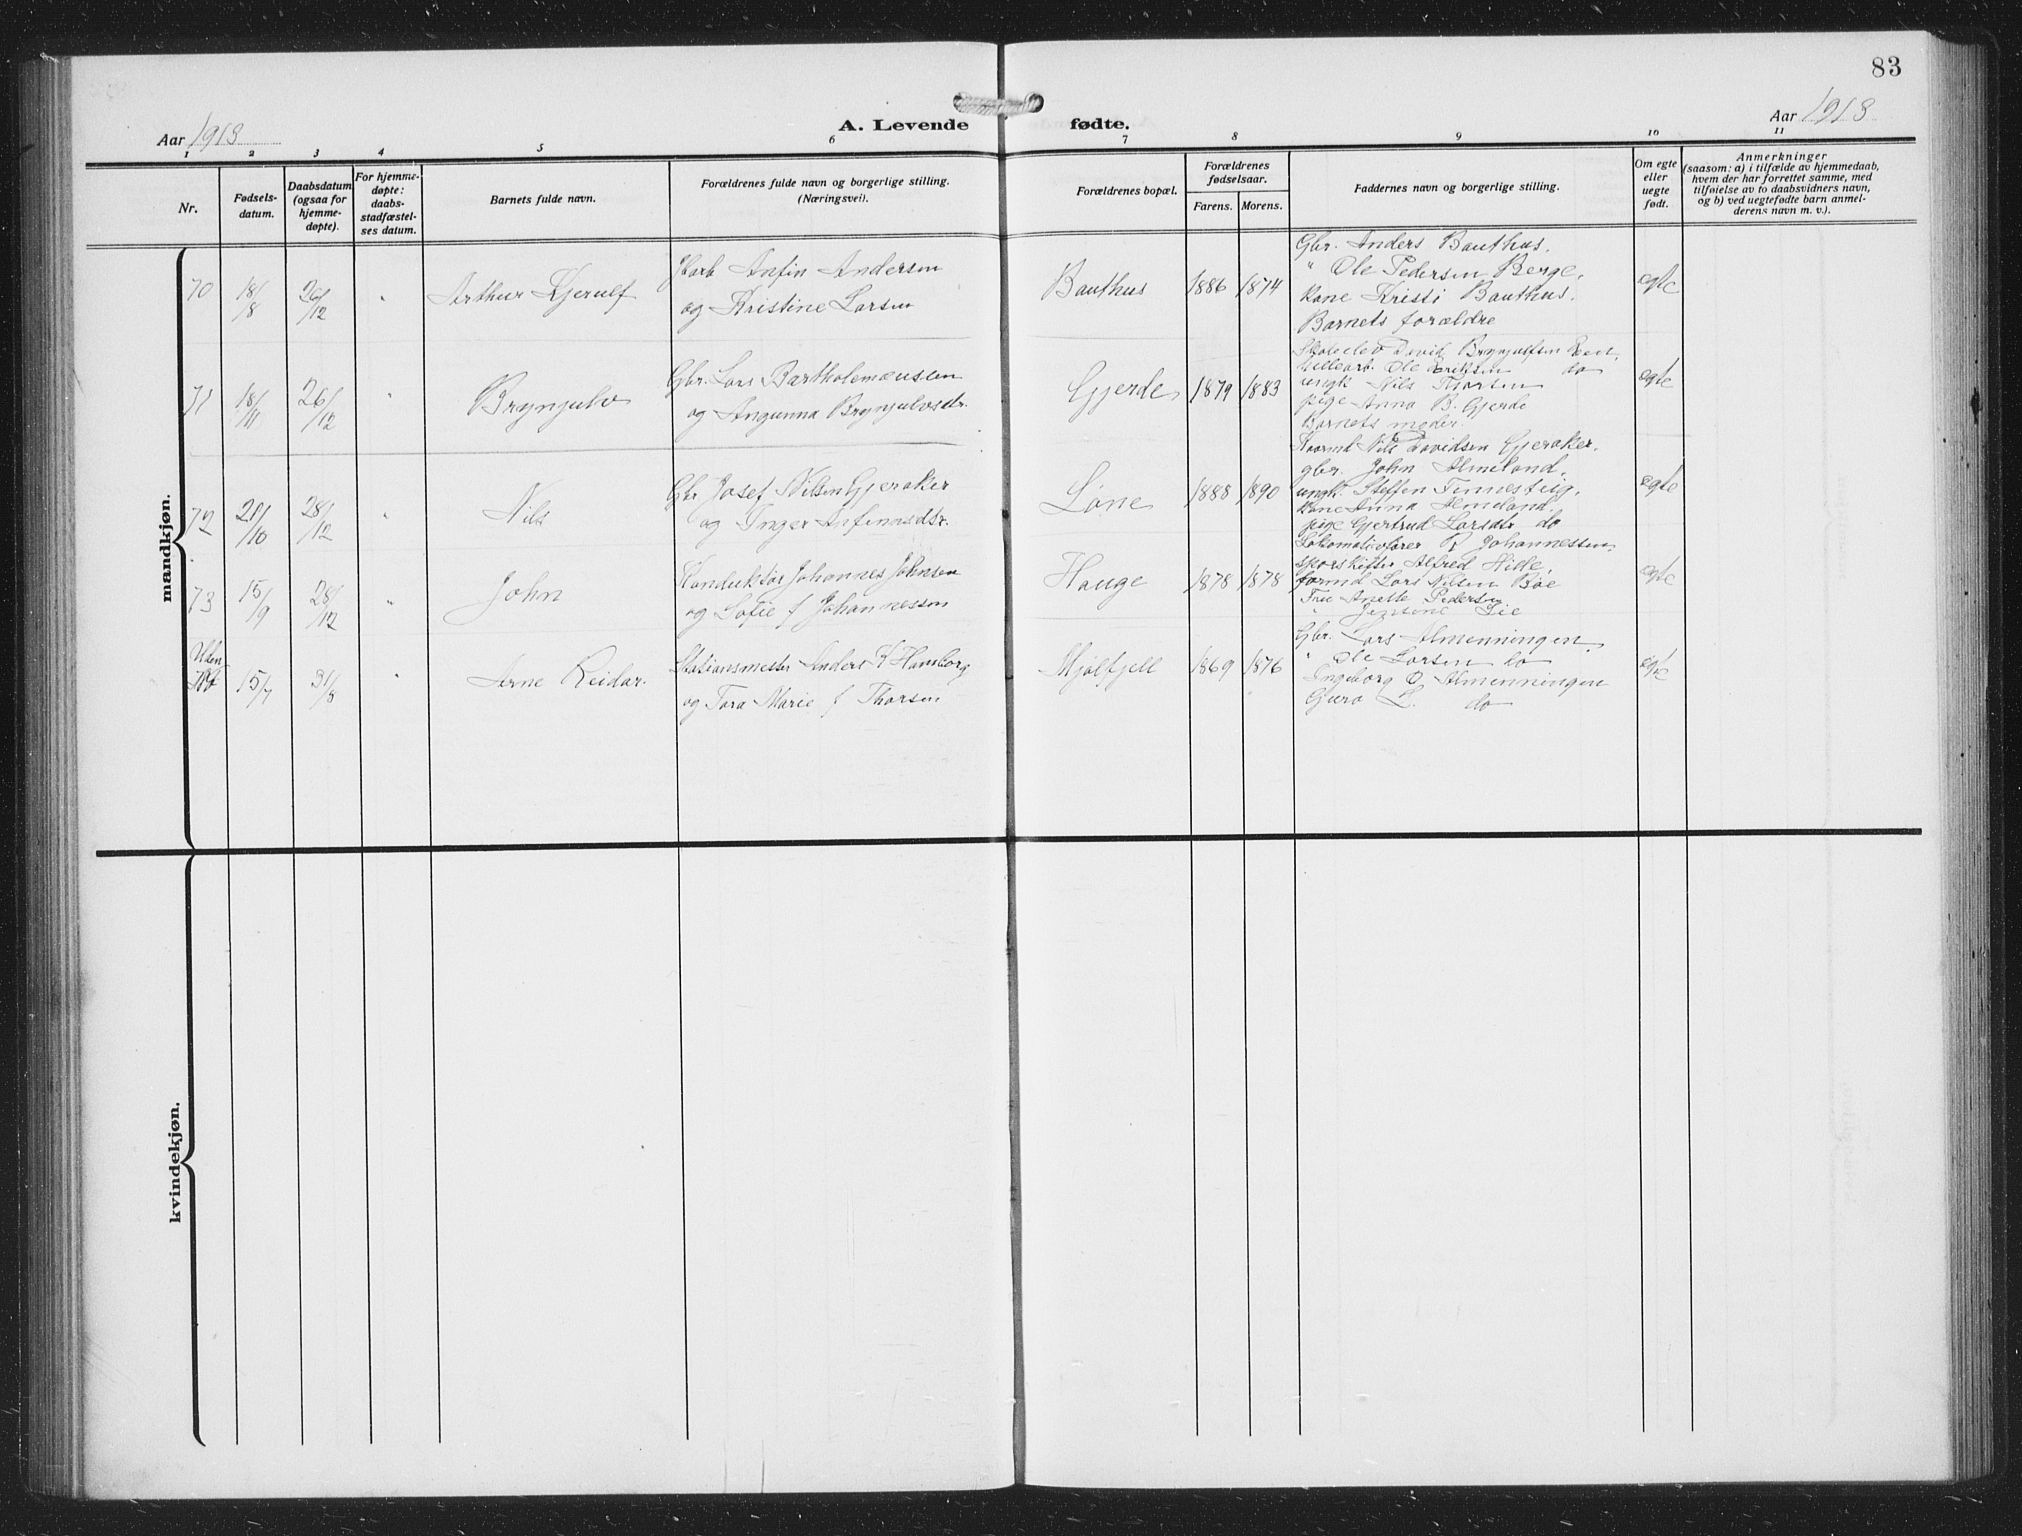 83
Aar 1913
A. Levende fødte.
Aar 1913
1 2 3 4 5 6 7 8 9 10 11
Nr.
Fødsels-
datum.
Daabsdatum
(ogsaa for
hjemme-
døpte).
For hjemme-
døpte:
daabs-
stadfæstel-
ses datum.
Barnets fulde navn.
Forældrenes fulde navn og borgerlige stilling.
(Næringsvei).
Forældrenes bopæl.
Forældrenes
fødselsaar.
Farens. Morens.
Faddernes navn og borgerlige stilling.
Om egte
eller
uegte
født.
Anmerkninger
(saasom: a) i tilfælde av hjemmedaab,
hvem der har forrettet samme, med
tilføielse av to daabsvidners navn,
og b) ved uegtefødte barn anmel-
derens navn m. v.).
mandkjøn.
70 18/8 26/12 " Arthur Kjerulf
Anfin Andersen
og Kristine Larsen
Bauthus 1886 1874
Gbr. Anders Bauthus.
" Ole Pedersen Berge.
Kone Kristi Bauthus.
Barnets forældre
egte
71 18/11 26/12 " Brynjulv
Gbr. Lars Bartholemæussen
og Angunna Brynjulvsdr.
Gjerde 1879 1883
David Brynjulfsen
Ole Eriksen do
ungk Nils
pige Anna B. Gjerde
Barnets moder.
egte
72 21/10 28/12 " Nils
Gbr Josef Nilsen Gjeraker
og Inger Anfinnsdtr.
Løne 1888 1890
Nils Davidsen Gjeraker.
gbr. John Almeland.
ungk. Steffen Finnesteig.
Kone Anna Almeland.
pige Gjertrud Larsdtr do
egte
73 15/9 28/12 " John
Konduktør Johannes Johnsen
og Sofie f Johannessen
Hauge 1878 1878
Lokomotivfører R. Johannessen.
Sporskifter Alfred Hilde.
formd Lars Nilsen Bøe
Fru Anette Pedersen
" Jensine Lie
egte
Uden
Nr 15/7 31/8 " Arne Reidar.
Stationsmester Anders K Hamborg
og Tora Marie f Thorsen
Mjølfjell 1869 1876
Gbr. Lars Almenningen.
" Ole Larsen do
Ingeborg O. Almenningen
Gjero L. do
egte
kvindekjøn.